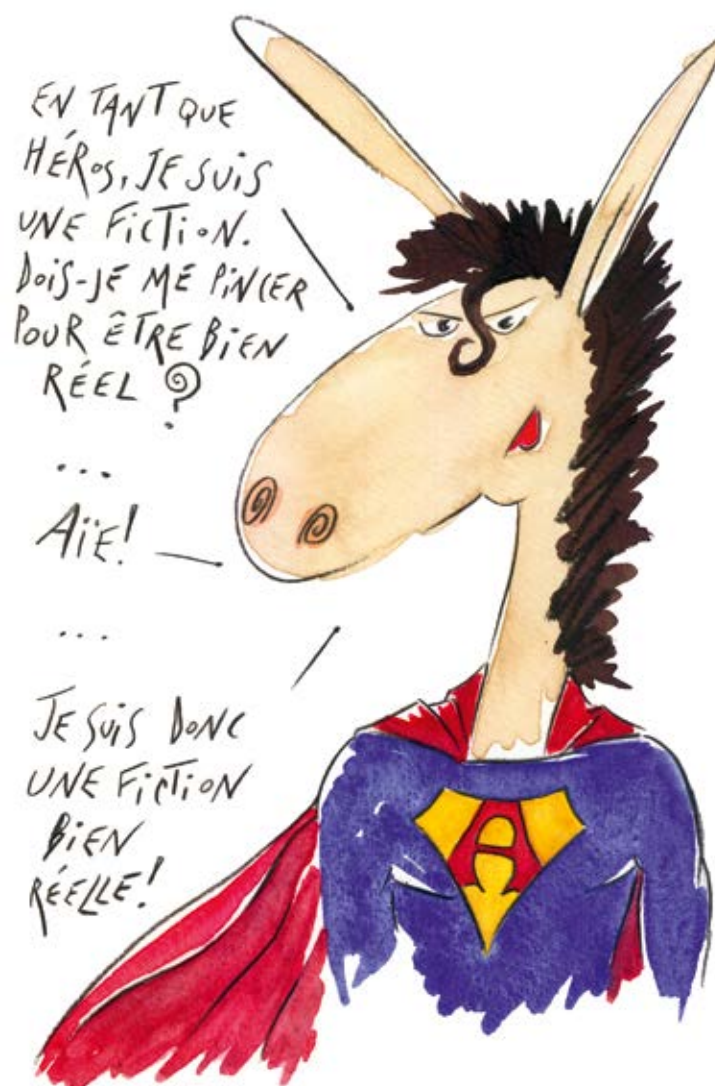 EN TANT QUE
HÉROS, JE SUIS
UNE FICTION.
DOIS-JE ME PINCER
POUR ÊTRE BIEN
RÉEL ?
...
AÏE!
...
JE SUIS DONC
UNE FICTION
BIEN
RÉELLE!
A